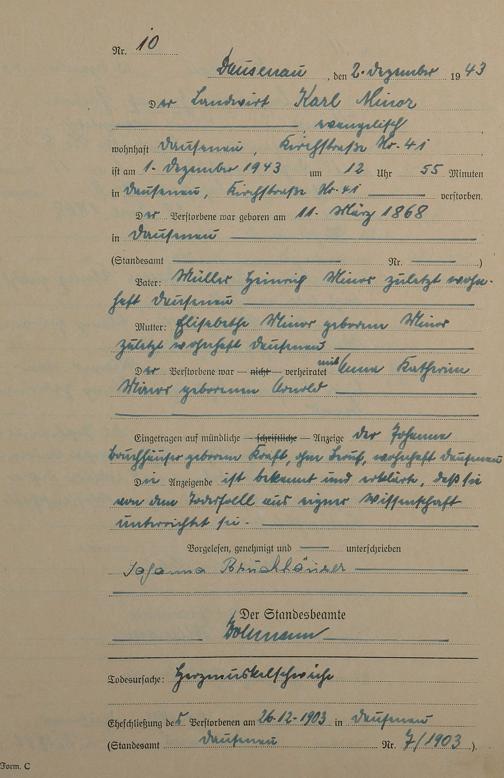 Nr. 10
Dausenau, den 2. Dezember 1943
Der Landwirt Karl Minor
evangelisch
wohnhaft Dausenau, Kirchstraße Nr. 41
ist am 1. Dezember 1943 um 12 Uhr 55 Minuten
in Dausenau, Kirchstraße Nr. 41 verstorben.
Der Verstorbene war geboren am 11. März 1868
in Dausenau
(Standesamt Nr. )
Vater: Müller Heinrich Minor zuletzt wohn-
haft Dausenau
Mutter: Elisabethe Minor geborene Minor
zuletzt wohnhaft Dausenau
Der Verstorbene war — nicht — verheiratet mit Anna Katharina
Minor geborenen Arnold
Eingetragen auf mündliche — schriftliche — Anzeige der Johanna
Bruchhäuser geborene Kraft, ohne Beruf, wohnhaft Dausenau
Die Anzeigende ist bekannt und erklärte, daß sie
von dem Todesfall aus eigner Wissenschaft
unterrichtet sei.
Vorgelesen, genehmigt und unterschrieben
Johanna Bruchhäuser
Der Standesbeamte
Todesursache: Herzmuskelschwäche
Eheschließung des Verstorbenen am 26.12.1903 in Dausenau
(Standesamt Dausenau Nr. 7/1903)
Form. C